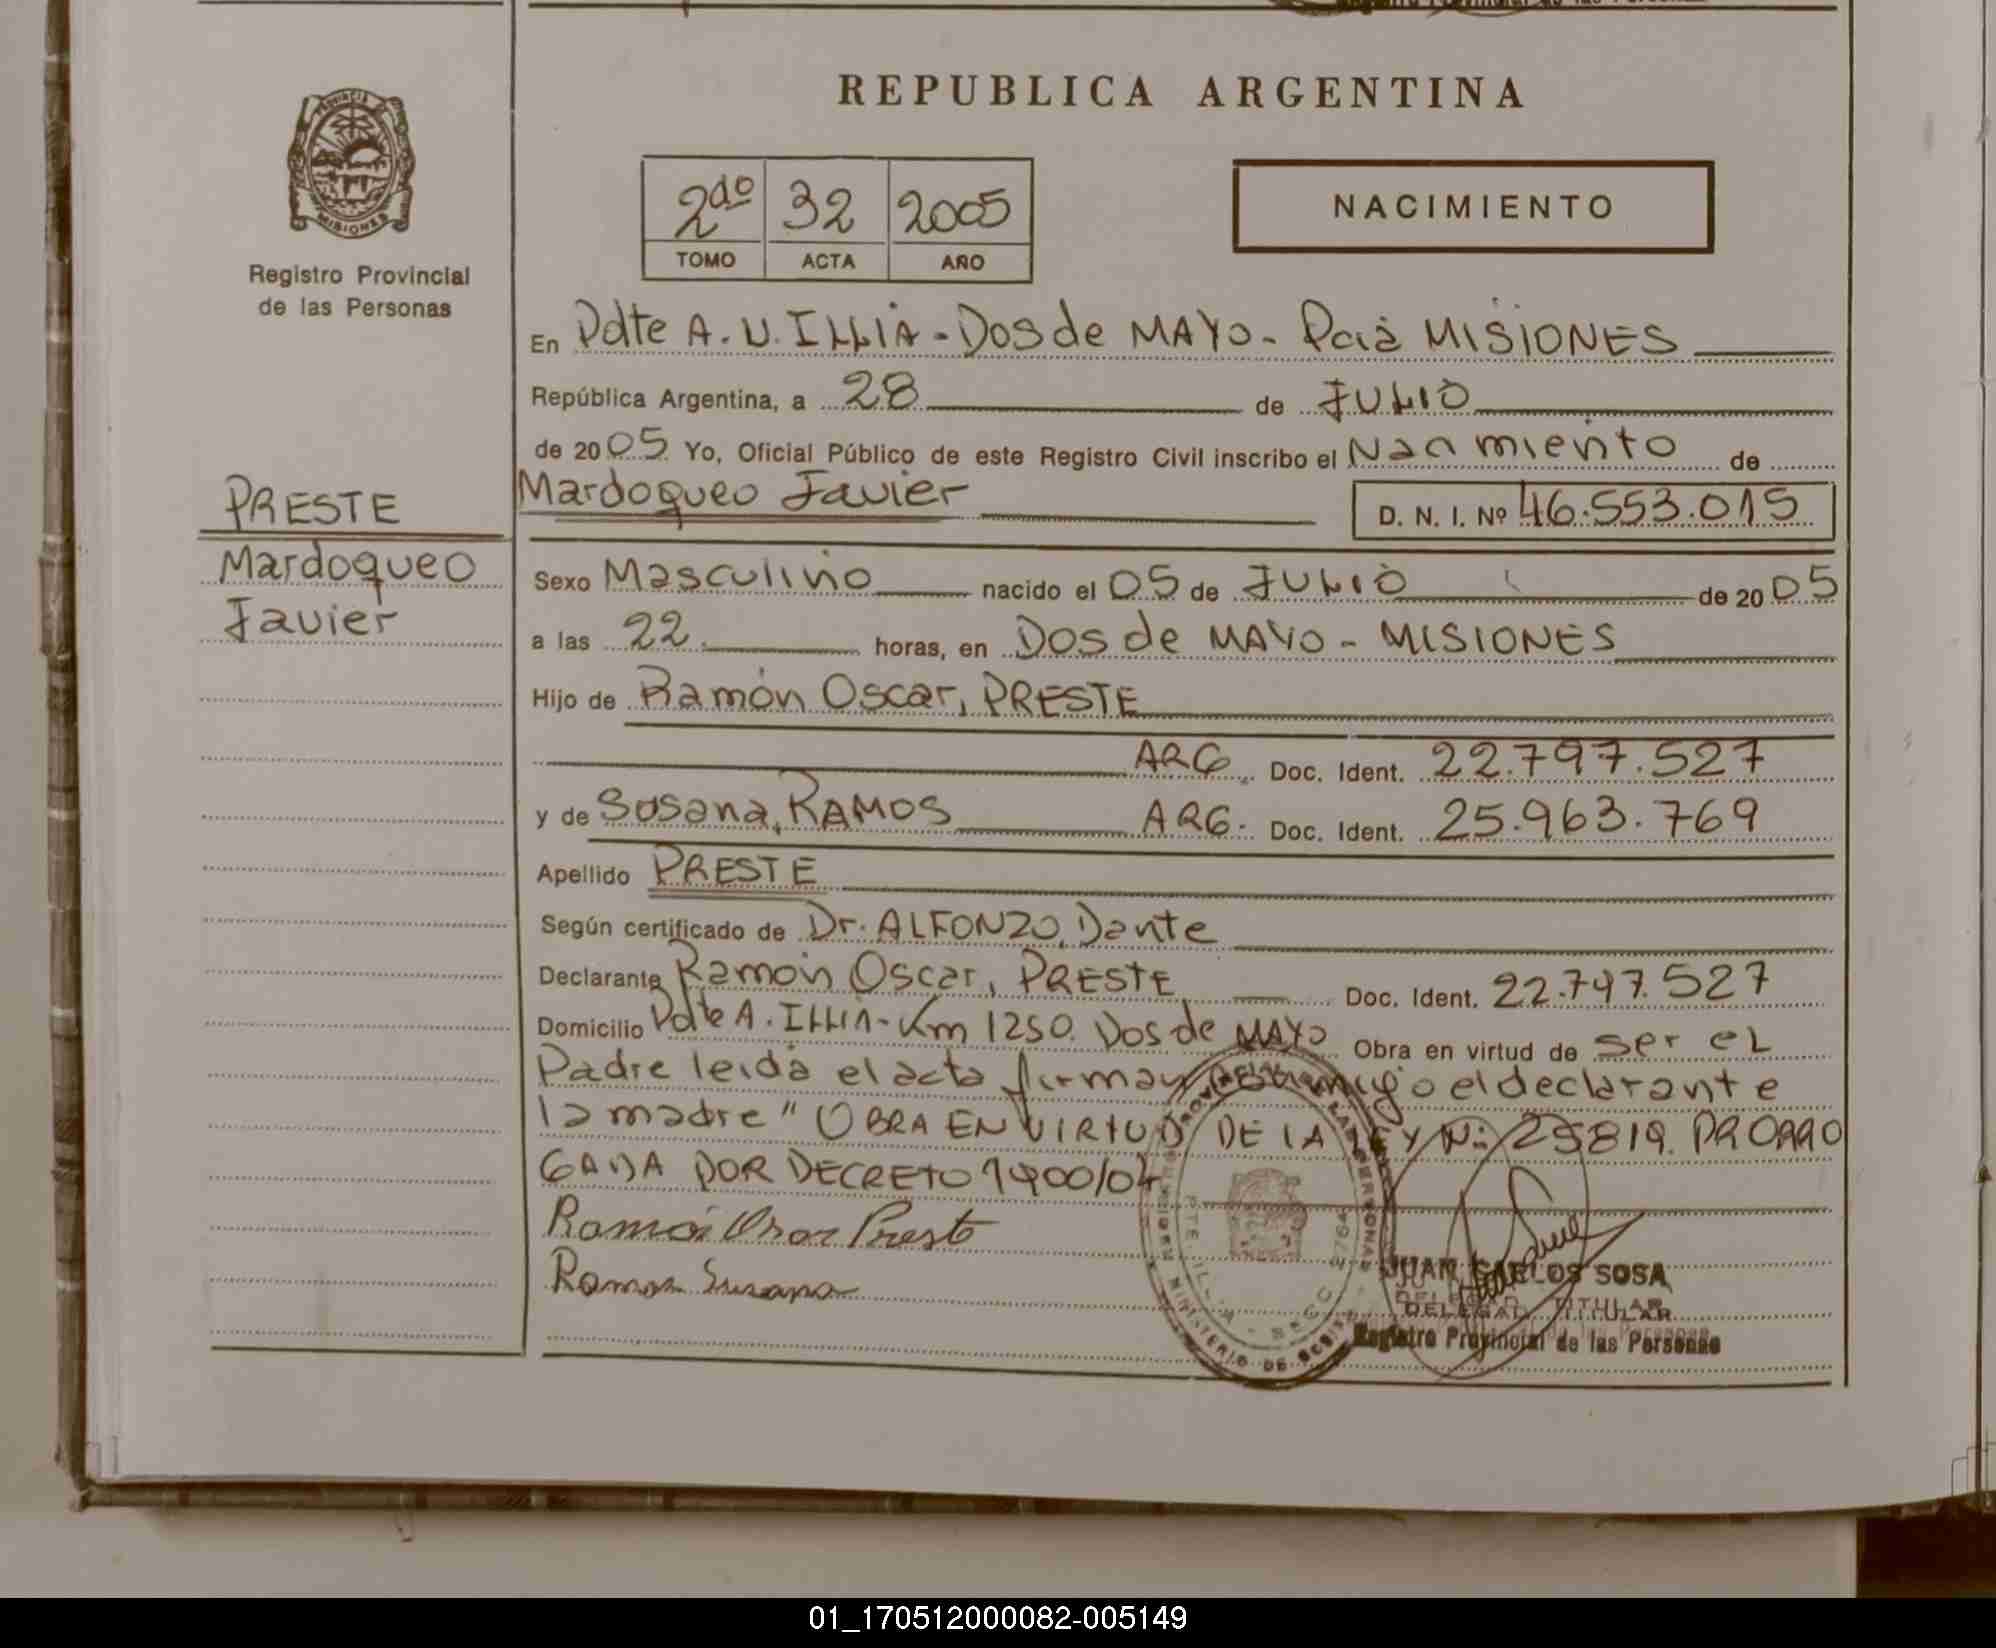 REPUBLICA ARGENTINA
PROVINCIA
MISIONES
Registro Provincial
de las Personas
2do 32 2005
TOMO ACTA AÑO
NACIMIENTO
En Pdte A. U. ILLIA - Dos de MAYO - Pcia MISIONES
República Argentina, a 28 de JULIO
de 2005 Yo, Oficial Público de este Registro Civil inscribo el Nacimiento de
Mardoqueo Javier D. N. I. Nº 46.553.015
PRESTE
Mardoqueo
Javier
Sexo Masculino nacido el 05 de JULIO de 2005
a las 22 horas, en Dos de MAYO - MISIONES
Hijo de Ramón Oscar, PRESTE
ARG. Doc. Ident. 22.797.527
y de Susana, RAMOS ARG. Doc. Ident. 25.963.769
Apellido PRESTE
Según certificado de Dr. ALFONZO, Dante
Declarante Ramón Oscar, PRESTE Doc. Ident. 22.797.527
Domicilio Pdte A. ILLIA - Km 1250. Dos de MAYO Obra en virtud de ser el
Padre leída el acta firman conmigo el declarante
la madre " OBRA EN VIRTUD DE LA LEY Nº 25819. PRORRO
GADA POR DECRETO 1900/04
Ramón Oscar Preste
Ramos Susana
JUAN CARLOS SOSA
DELEGADO TITULAR
Registro Provincial de las Personas
01_170512000082-005149